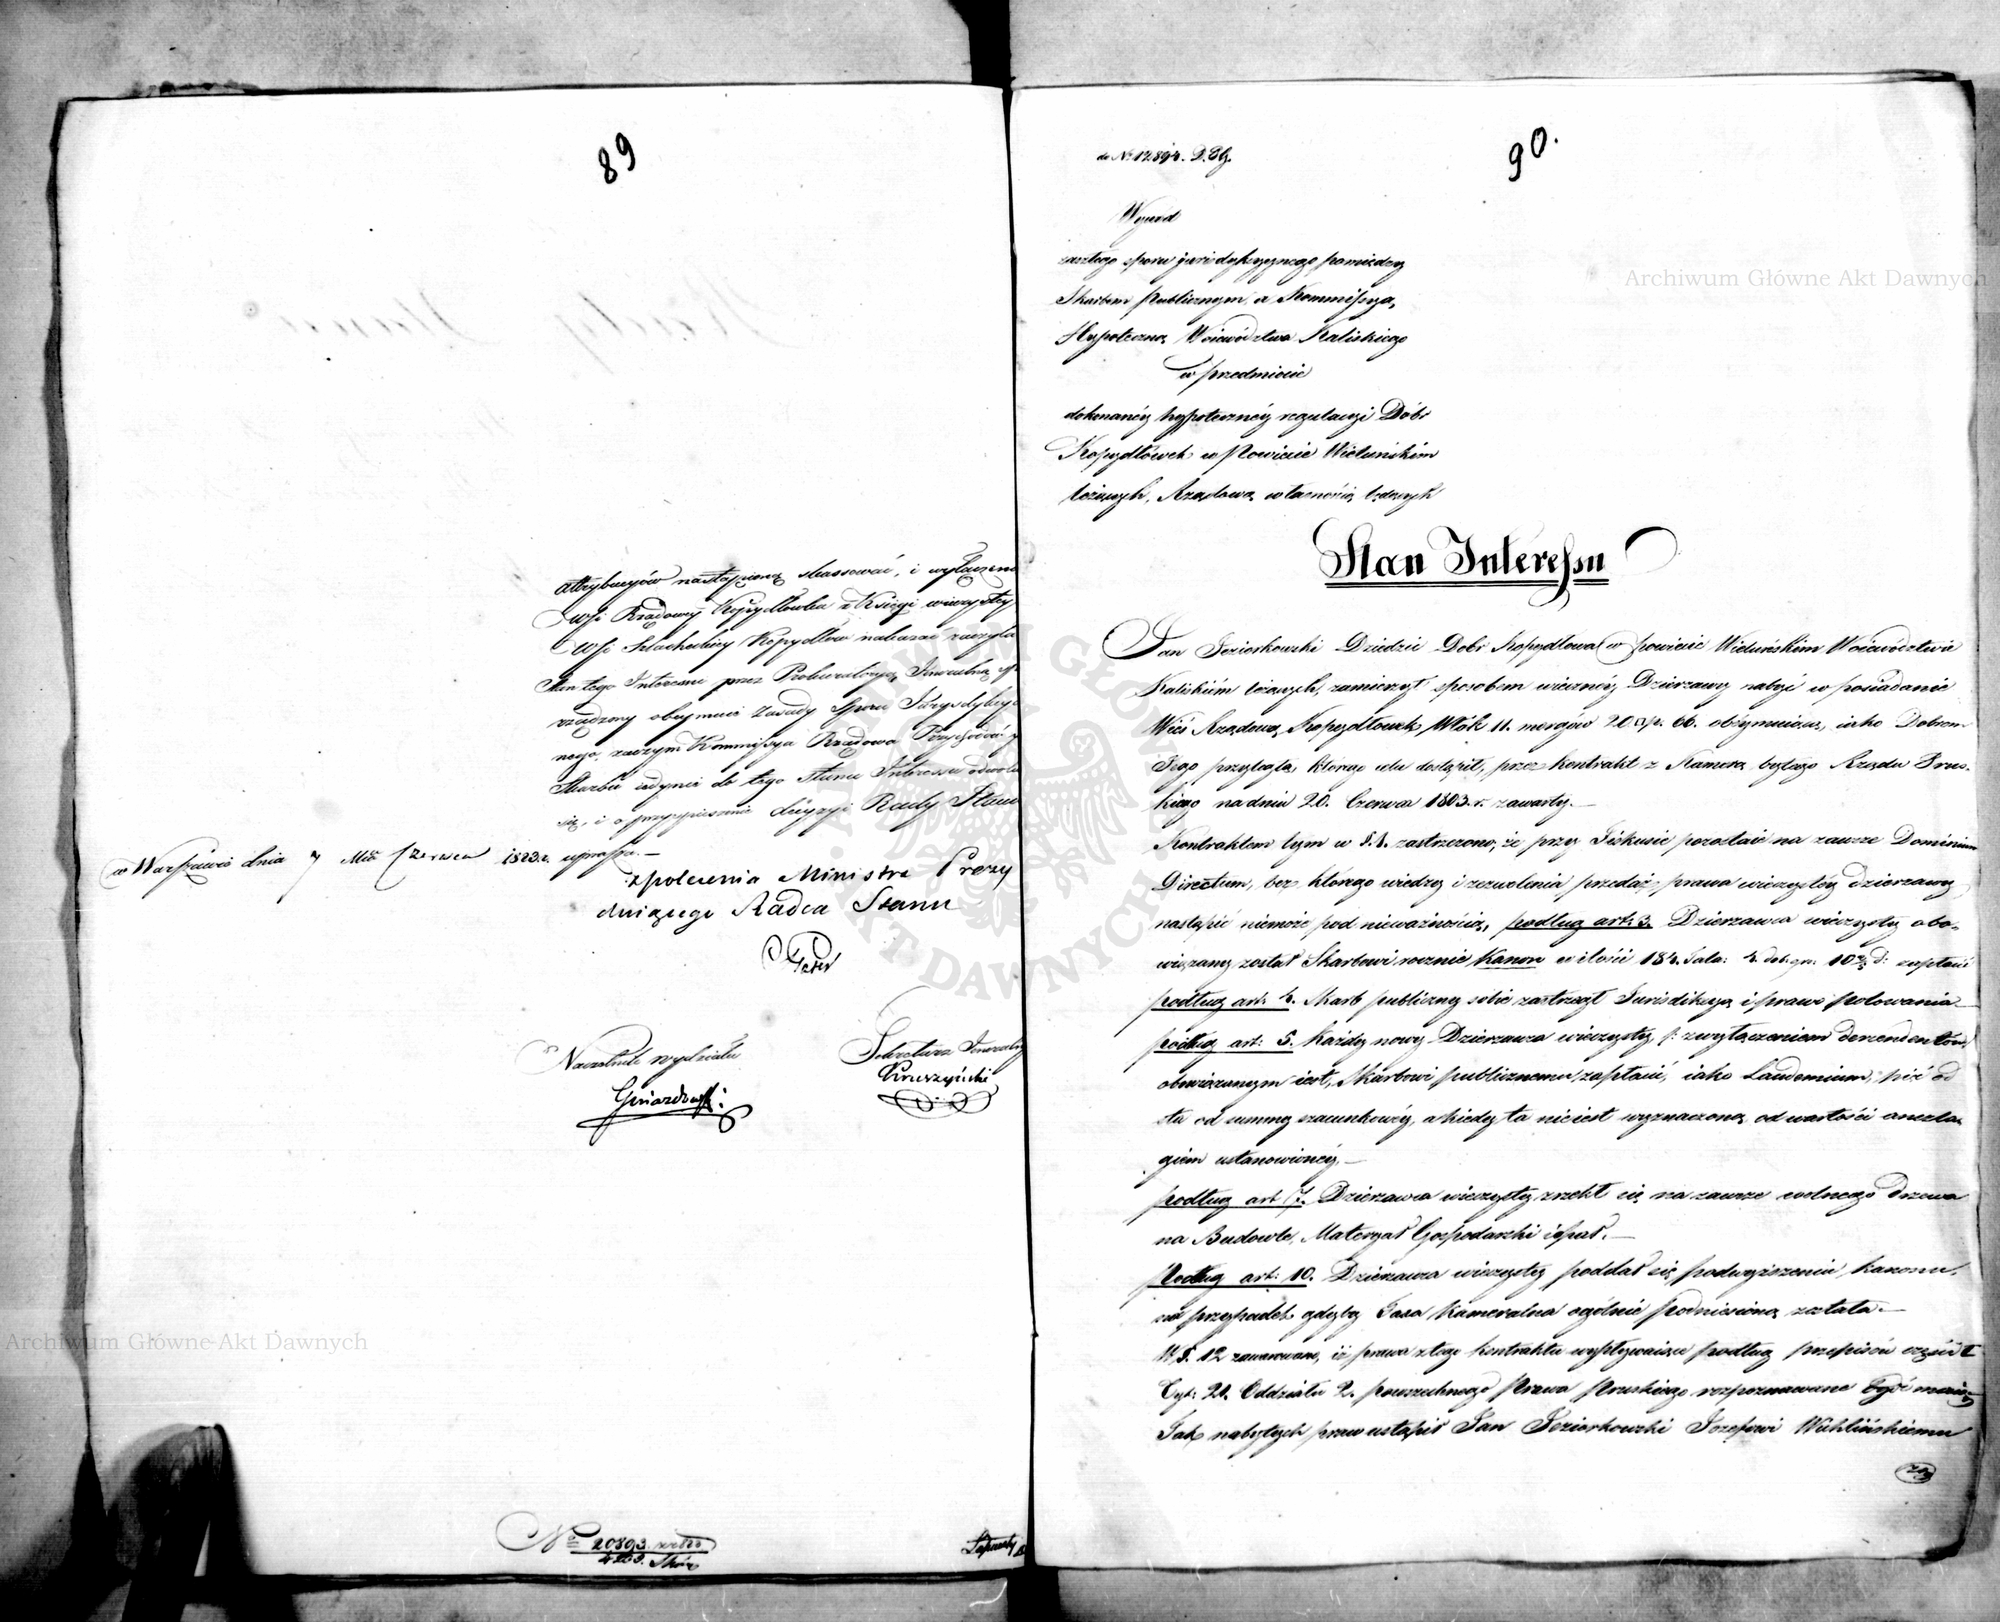 89
attrybucyów nastąpioną skassować, i wyłączeni
Wsi Rządowey Kopydłówka z Księgi wieczystey
Wsi Szlacheckiey Kopydłów nakazać raczyła
Stan tego Interesu przez Prokuratoryą Jeneralną s
rządzony obeymuie Zasady Sporu Jurysdykcy
nego, zaczym Kommissya Rządowa Przychodów y
Skarbu iedynie do tego Stanu Interessu odwołu
się, i o przyspieszenie decyzyi Rady Stanu
w Warszawie dnia 7 Mca Czerwca 1823 r. uprasza.—
z polecenia Ministra Prezy
duiącego Radca Stanu
Naczelnik wydziału
Sekretarz Jeneralny
Kruszyński
No 20893
4263.
90.
do No 17894. D.
Wywód
zaszłego sporu juridykcyynego pomiędzy
Skarbem Publicznym, a Kommissyą
Hypoteczną Woiewództwa Kaliskiego
w przedmiocie
dokonanéy hypotecznéy regulacyi Dóbr
Kopydłówek w Powiecie Wieluńskim
leżących, Rządową własnością będących
Stan Interessu
Jan Jeziorkowski Dziedzic Dóbr Kopydłowa w Powiecie Wieluńskim Woiewództwie
Kaliskiém leżących, zamierzył sposobem wiecznéy Dzierzawy nabyć w posiadanie
Wieś Rządową Kopydłówek Włók 11. morgów 20 p. 66. obeymuiącą, iako Dobrom
Jego przyległą, którego celu dostąpił, przez kontrakt z Kamerą byłego Rządu Prus-
kiego na dniu 20. Czerwca 1803. r. zawarty.—
Kontraktem tym w §. 1. zastrzeżono, że przy Fiskusie pozostaie na zawsze Dominium
Directum, bez którego wiedzy i zezwolenia przedaż prawa wieczystey dzierzawy
nastąpić niemoże pod nieważnością, podług art: 3. Dzierzawca wieczysty obo-
wiązany został Skarbowi rocznie Kanon w ilości 184. Tala: 4. dob: gr: 10 d: zapłacić
podług art: 4. Skarb publiczny sobie zastrzegł Jurisdikcyą i prawo polowania
podług art: 5. każdy nowy Dzierzawca wieczysty /: z wyłączeniem descendentów/
obowiązanym iest, Skarbowi publicznemu zapłacić, iako Laudemium, pięć od
sta od summy szacunkowéy, a kiedy ta nie iest wyznaczoną, od wartości anszla-
giem ustanowionéy.—
podług art 7. Dzierzawca wieczysty zrzekł się na zawsze wolnego drzewa
na Budowle, Materyał Gospodarski i opał.—
Podług art: 10. Dzierzawca wieczysty poddał się podwyższeniu kanonu,
na przypadek gdyby Taxa Kameralna ogólnie podniesioną została.—
W §. 12 zawarowano, iż prawa z tego kontraktu wypływaiące podług przepisów części I
Tyt: 21. Oddziału 2. powszechnego Prawa Pruskiego rozpoznawane być maią
Tak nabytych praw ustąpił Jan Jeziorkowski Józefowi Wichlińskiemu
Archiwum Główne Akt Dawnych
Archiwum Główne Akt Dawnych
ARCHIWUM GŁÓWNE AKT DAWNYCH